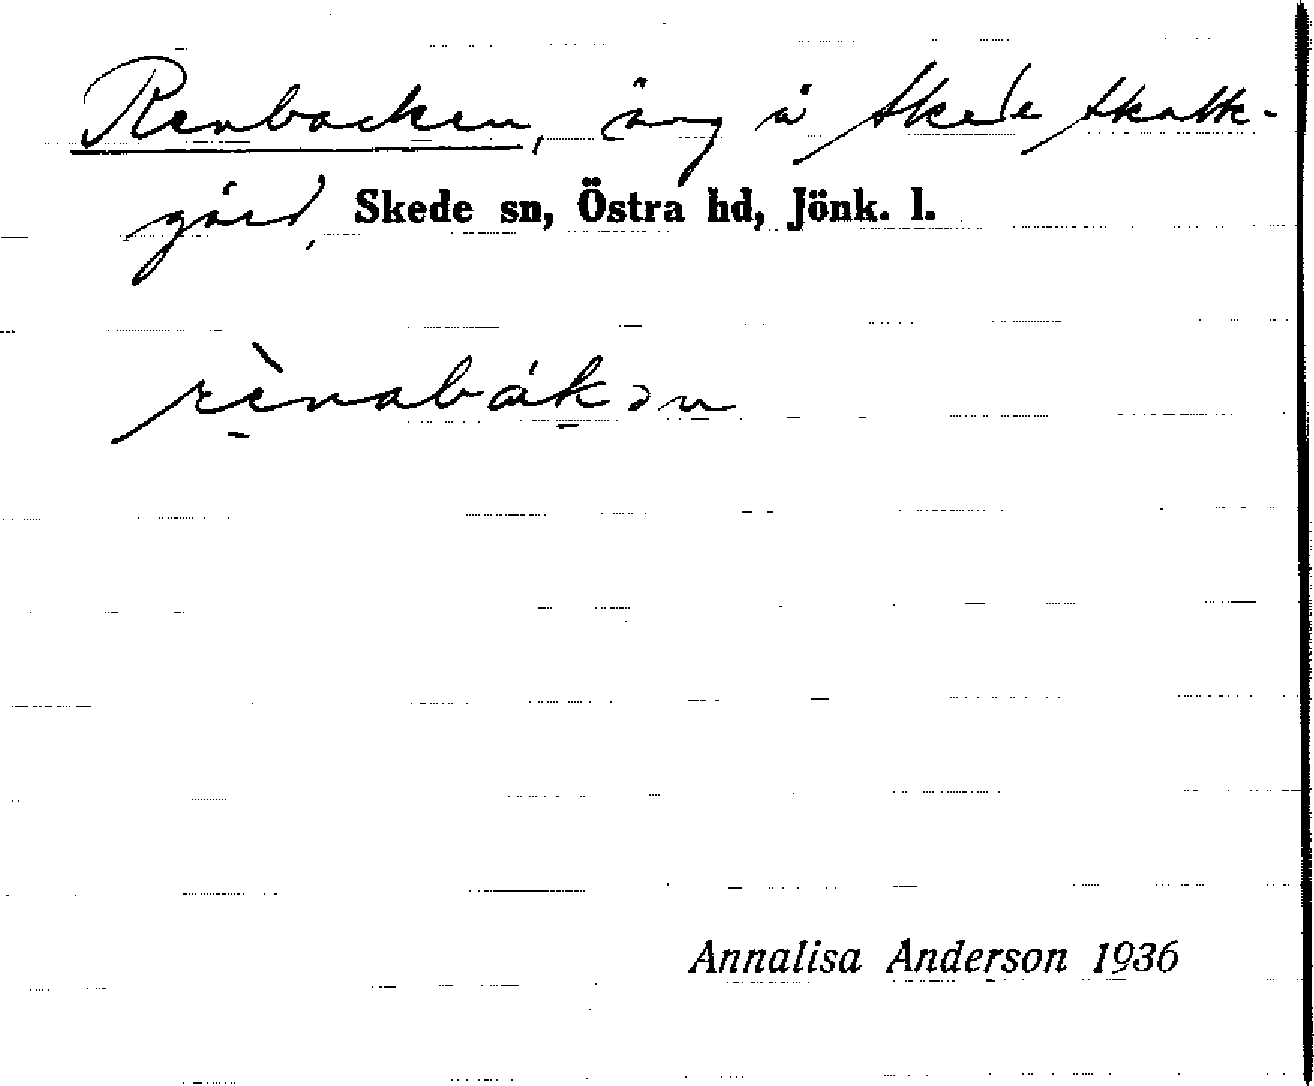 Renbacken, äng å Skede skatte-
gård, Skede sn, Östra hd, Jönk. l.
rènabákən
Annalisa Anderson 1936